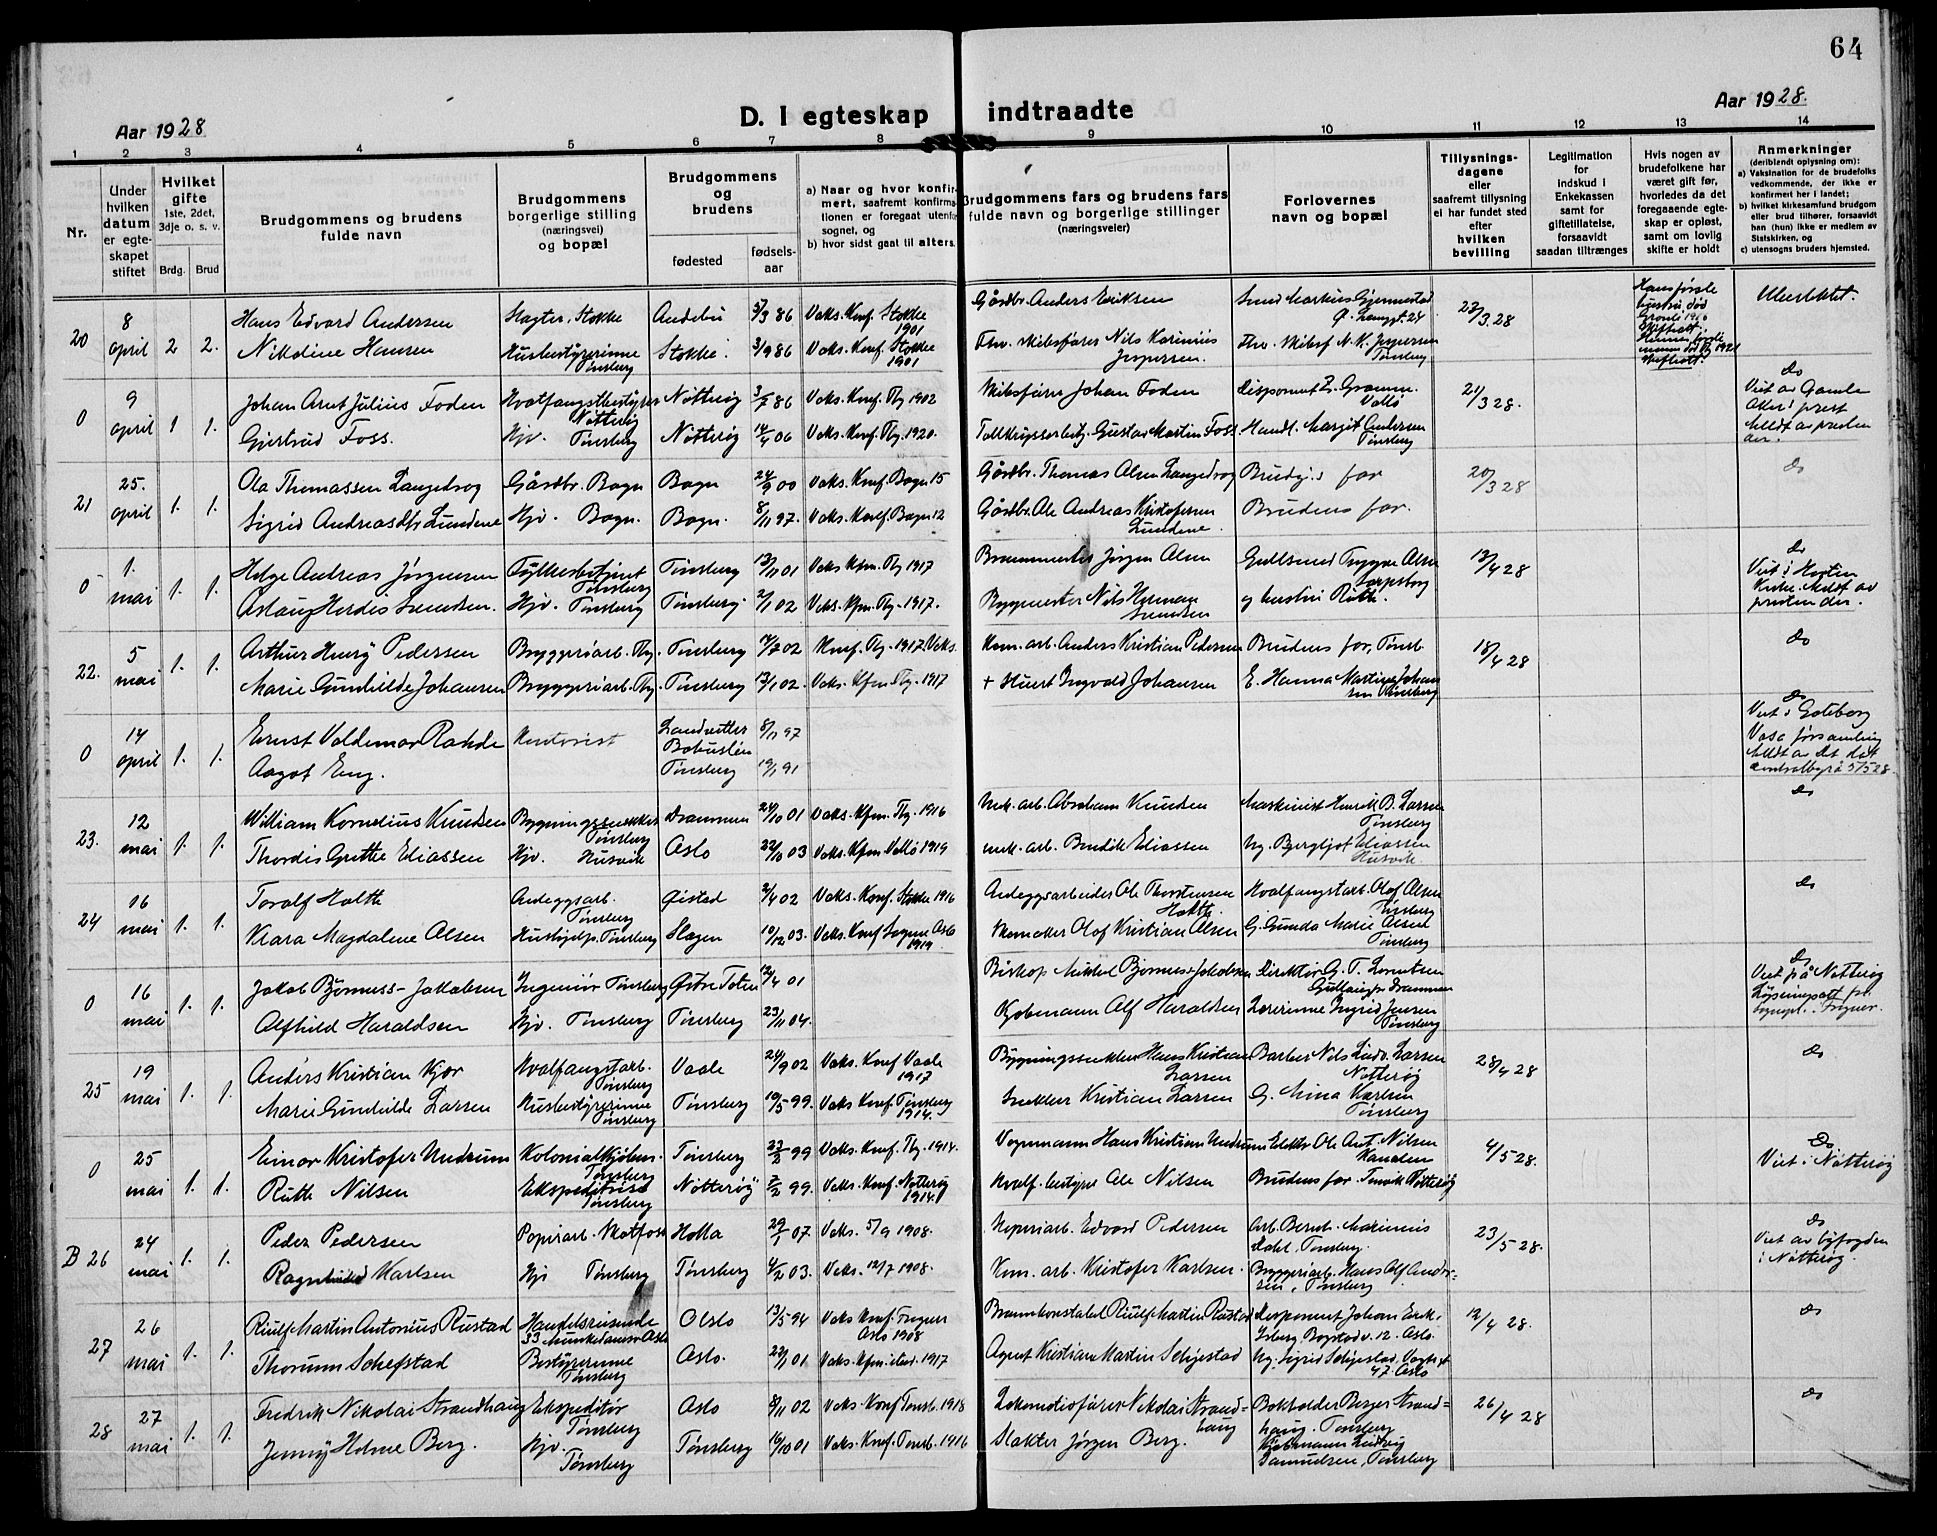 64
Aar 1928
D. I egteskap indtraadte
Aar 1928.
1 2 3 4 5 6 7 8 9 10 11 12 13 14
Nr.
Under hvilken datum er egteskapet stiftet
Hvilket gifte 1ste, 2det, 3dje o. s. v.
Brdg. Brud
Brudgommens og brudens fulde navn
Brudgommens borgerlige stilling (næringsvei) og bopæl
Brudgommens og brudens
fødested
fødselsaar
a) Naar og hvor konfirmert, saafremt konfirmationen er foregaat utenfor sognet, og
b) hvor sidst gaat til alters.
Brudgommens fars og brudens fars fulde navn og borgerlige stillinger (næringsveier)
Forlovernes navn og bopæl
Tillysningsdagene eller saafremt tillysning ei har fundet sted efter hvilken bevilling
Legitimation for indskud i Enkekassen samt for giftetillatelse, forsaavidt saadan tiltrænges
Hvis nogen av brudefolkene har været gift før, hvorledes da det foregaaende egteskap er opløst, samt om lovlig skifte er holdt
Anmerkninger (deriblandt oplysning om):
a) Vaksination for de brudefolks vedkommende, der ikke er konfirmert her i landet;
b) hvilket kirkesamfund brudgom eller brud tilhører, forsaavidt han (hun) ikke er medlem av Statskirken, og
c) utensogns bruders hjemsted.
20 8 april 2 2.
Hans Edvard Andersen Slagter, Stokke Andebu 5/3 86 Vaks. Konf. Stokke 1901 Gårdbr. Anders Eriksen 23/3.28
Nikoline Hansen Husbestyrerinne Tønsberg Stokke 3/9 86 Vaks. Konf. Stokke 1901 Fhv. skibsfører Nils Karinius Jespersen Fhv. skibsf. N. K. Jespersen Tønsberg
0 9 april 1 1.
Johan Arnt Julius Foden Hvalfangstbestyrer Nøtterøy Nøtterøy 3/7 86 Vaks. Konf. Tbg 1902 Skibsfører Johan Foden Disponent Z. Gramm. Vallø 21/3 28. do
Gjertrud Foss. Hjv. Tønsberg Nøtterøy 14/4 06 Vaks. Konf. Tbg. 1920. Gustav Martin Foss. Handl. Margit Andersen Tønsberg
Viet av Gamle Aker's prest Meldt av presten der.
21 25. april 1. 1.
Ola Thomassen Langedrog Gårdbr. Bagn Bagn 24/9 00 Vaks. Konf. Bagn 15 Gårdbr. Thomas Olsen Langedrog Brudg.s far 20/3 28 do
Sigrid Andreasdtr Lundene Hjv. Bagn. Bagn. 8/11 97. Vaks. Konf. Bagn 12 Gårdbr. Ole Andreas Kristofersen Lundene. Brudens far.
0 1. mai 1. 1.
Helge Andreas Jørgensen Fylkesbetjent Tønsberg Tønsberg 13/11 01 Vaks Kfm. Tbg 1917 Jørgen Olsen Gullsmed Trygve Olsen Sarpsborg 13/4 28 do
Aslaug Herdis Svendsen. Hjv. Tønsberg Tønsberg. 2/1 02 Vaks. Kfm. Tbg. 1917. Byggmester Nils Herman Svendsen og hustru Ruth.
Viet i Horten Kirke. Meldt av presten der.
22. 5 mai 1. 1.
Arthur Henry Pedersen Bryggeriarb. Tbg. Tønsberg 14/7 02 Konf. Tbg. 1917. Vaks. Kom. arb. Anders Kristian Pedersen Brudens far, Tønsb. 18/4 28 do
Marie Gunhilde Johansen Bryggeriarb. Tbg. Tønsberg 13/1 02. Vaks. Kfm Tbg. 1917 + Stuert Ingvald Johansen E. Hanna Martine Johansen Tønsberg
0 14 april 1. 1.
Ernst Valdemar Rahde Kontorist Landvetter Bohuslén 8/11 97 do
Aagot Eng. Tønsberg 19/1 91
Viet i Gøteborg Vasa församling Meldt av det Centralbyrå 5/5 28.
23. 12 mai 1. 1.
William Kornelius Knudsen Bygningssnekker Tønsberg Drammen 24/10 01 Vaks. Kfm. Tbg. 1916 Mek. arb. Abraham Knudsen Maskinist Henrik B. Larsen Tønsberg do
Thordis Grethe Eliassen Hjv. Husvik Oslo 22/10 03 Vaks. Kfm Vallø 1919 Mek. arb. Bendik Eliassen Ug. Bergljot Eliassen Husvik
24 16 mai 1. 1.
Toralf Holth Anleggsarb. Tønsberg Øistad 2/4 02 Vaks. Konf. Stokke 1916 Anleggsarbeider Ole Thorstensen Holth. Hvalfangstarb. Olaf Olsen Tønsberg do
Klara Magdalene Olsen Hushjelp. Tønsberg Slagen 19/12 03. Vaks. Konf. Sogne Arb 1919. Skomaker Olof Kristian Olsen G. Gunda Marie Olsen Tønsberg
0 16 mai 1. 1.
Jakob Bjørnuss-Jakobsen Ingeniør Tønsberg Østre Toten 12/4 01 Biskop Mikkel Bjørnuss-Jakobsen Direktør G. T. Lorentsen Drammen do
Alfhild Haraldsen Hjv. Tønsberg Tønsberg 23/11 04. Kjøbmann Alf Haraldsen Lærerinne Ingrid Jensen Tønsberg
Viet på Nøtterøy Løsningsatt fra sognepr. i Fagner.
25 19 mai 1. 1.
Anders Kristian Kjær Hvalfangstarb. Tønsberg Vaale 24/9 02 Vaks. Konf Vaale 1917 Bygningssnekker Hans Kristian Larsen Barber Nils Ludv. Larsen Nøtterøy 28/4 28 do
Marie Gunhilde Larsen Husbestyrerinne Tønsberg Tønsberg 19/5 99. Vaks Konf. Tønsberg 1914. Snekker Kristian Larsen G. Mina Karlsen Tønsberg
0 25 mai 1. 1.
Einar Kristofer Undrum Kolonialkjøbm. Tønsberg Tønsberg 23/2 99 Vaks. Konf. Tbg. 1914. Vognmann Hans Kristian Undrum Elektr. Ole Ant. Nilsen Kanalen 4/5 28. do
Ruth Nilsen Ekspeditrise Tønsberg Nøtterøy 7/2 99. Vaks. Konf. Nøtterøy 1914. Hvalf. bestyrer Ole Nilsen Brudens far. Tenvik Nøtterøy Viet i Nøtterøy
B 26 24 mai 1. 1.
Peder Pedersen Papirarb. Skotfoss Holla 29/1 07. Vaks. 5/9 1908. Papirarb. Edvard Pedersen Arb. Bernh. Marinius Dahl, Tønsberg. 23/5 28. do
Ragnhild Karlsen Hjv Tønsberg Tønsberg 4/2 03. Vaks. 12/7 1908. Kom. arb. Kristofer Karlsen. Bryggeriarb. Hans Alf Andersen, Tønsberg
Viet av byfogden i Nøtterøy
27 26 mai 1. 1.
Riulf Martin Antonius Rustad Handelsreisende 33 Munkedamsv Oslo Oslo 13/5 94 Vaks Konf. Fagner Oslo 1908 Brannkonstabel Riulf Martin Rustad Disponent Johan Erik. Isberg, Bogstadv. 12. Oslo. 12/4 28. do
Thorunn Schefstad Bestyrerinne Tønsberg Oslo. 22/1 01 Vaks. Kfm. sted. 1917 Agent Kristian Martin Schjestad Ug. Sigrid Schjestad, Vogtsgt 47 Oslo
28 27 mai 1. 1.
Fredrik Nikolai Strandhaug Ekspeditør Tønsberg Oslo 8/11 02 Vaks. Konf Tønsb. 1918 Lokomotivfører Nikolai Strandhaug Bokholder Berger Strandhaug, Tønsberg 26/4 28 do
Jenny Holme Berg. Hjv. Tønsberg Tønsberg 16/10 01 Vaks. Konf. Tønsb. 1916 Slakter Jørgen Berg. Kjøbmann Ludvig Samuelsen, Tønsberg